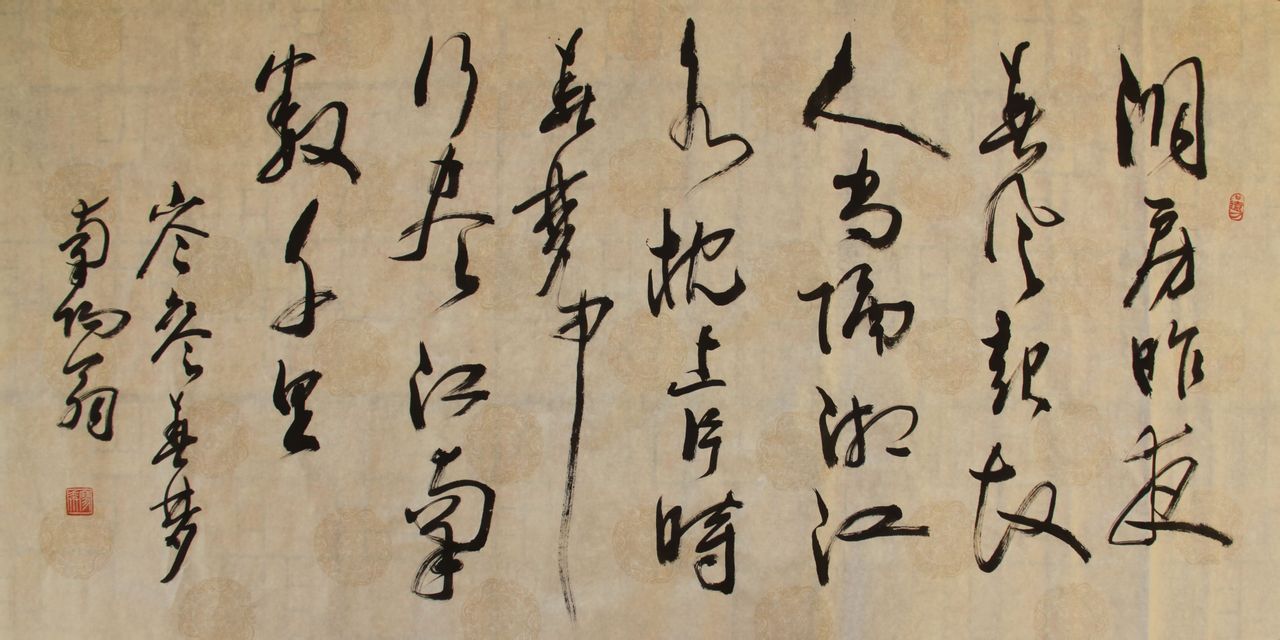 洞房昨夜
春风起故
人尚隔湘江
水枕上片时
春梦中
行尽江南
数千里
岑参春梦
南阳翁